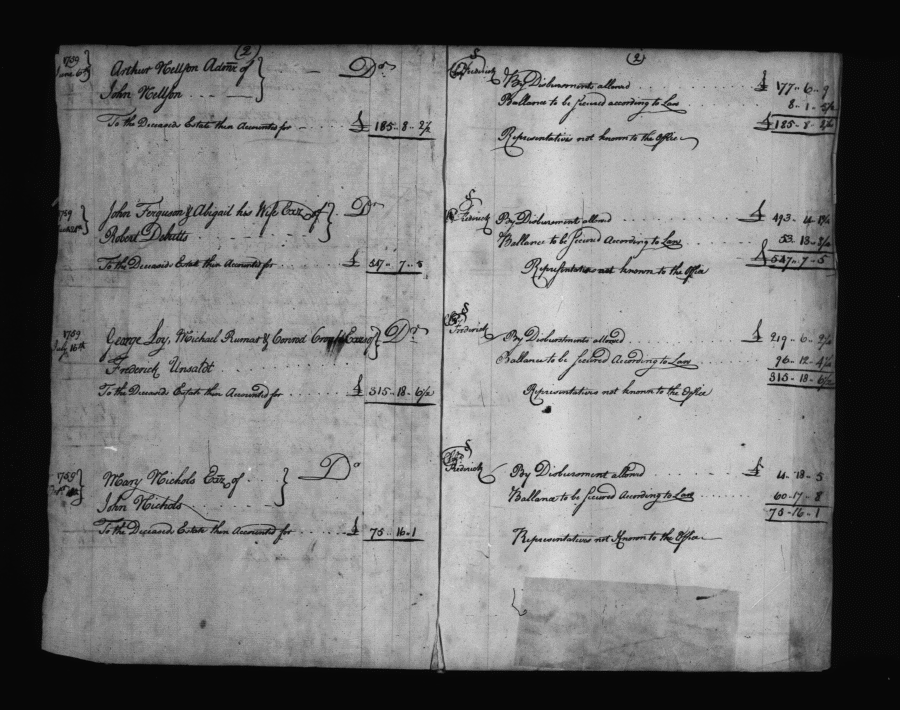 (2)
1759
June 6th
Arthur Nellson Admr of
John Nellson
Dr
To the Deceaseds Estate then Accounted for £ 185 .. 8 .. 2 1/2
1759
John Ferguson & Abigail his Wife Exx of
Robert Debutts
Dr
To the Deceaseds Estate then Accounted for £ 547 .. 7 .. 5
1759
July 16th
George Loy, Michael Rumar & Conrod Exrs of
Frederick Unsaldt
Dr
To the Deceaseds Estate then Accounted for £ 315 .. 18 .. 6 1/2
1759
Mary Nichols Exx of
John Nichols
Do
To the Deceaseds Estate then Accounted for £ 75 .. 16 .. 1
(2)
Frederick
By Disbursments allowed £ 177 .. 6 .. 9
Ballance to be Secured according to Law 8 .. 1 .. 5 1/2
£ 185 .. 8 .. 2 1/2
Representatives not known to the Office
Frederick
By Disbursment allowed £ 493 .. 4
Ballance to be Secured According to Law 53 .. 13
£ 547 .. 7 .. 5
Representatives not known to the Office
Frederick
By Disbursments allowed £ 219 .. 6 .. 2 1/4
Ballance to be Secured According to Law 96 .. 12 .. 4 1/4
315 .. 18 .. 6 1/2
Representatives not known to the Office
Frederick
By Disbursment allowed £ .. 18 .. 5
Ballance to be Secured According to Law 60 .. 17 .. 8
75 .. 16 .. 1
Representatives not Known to the Office